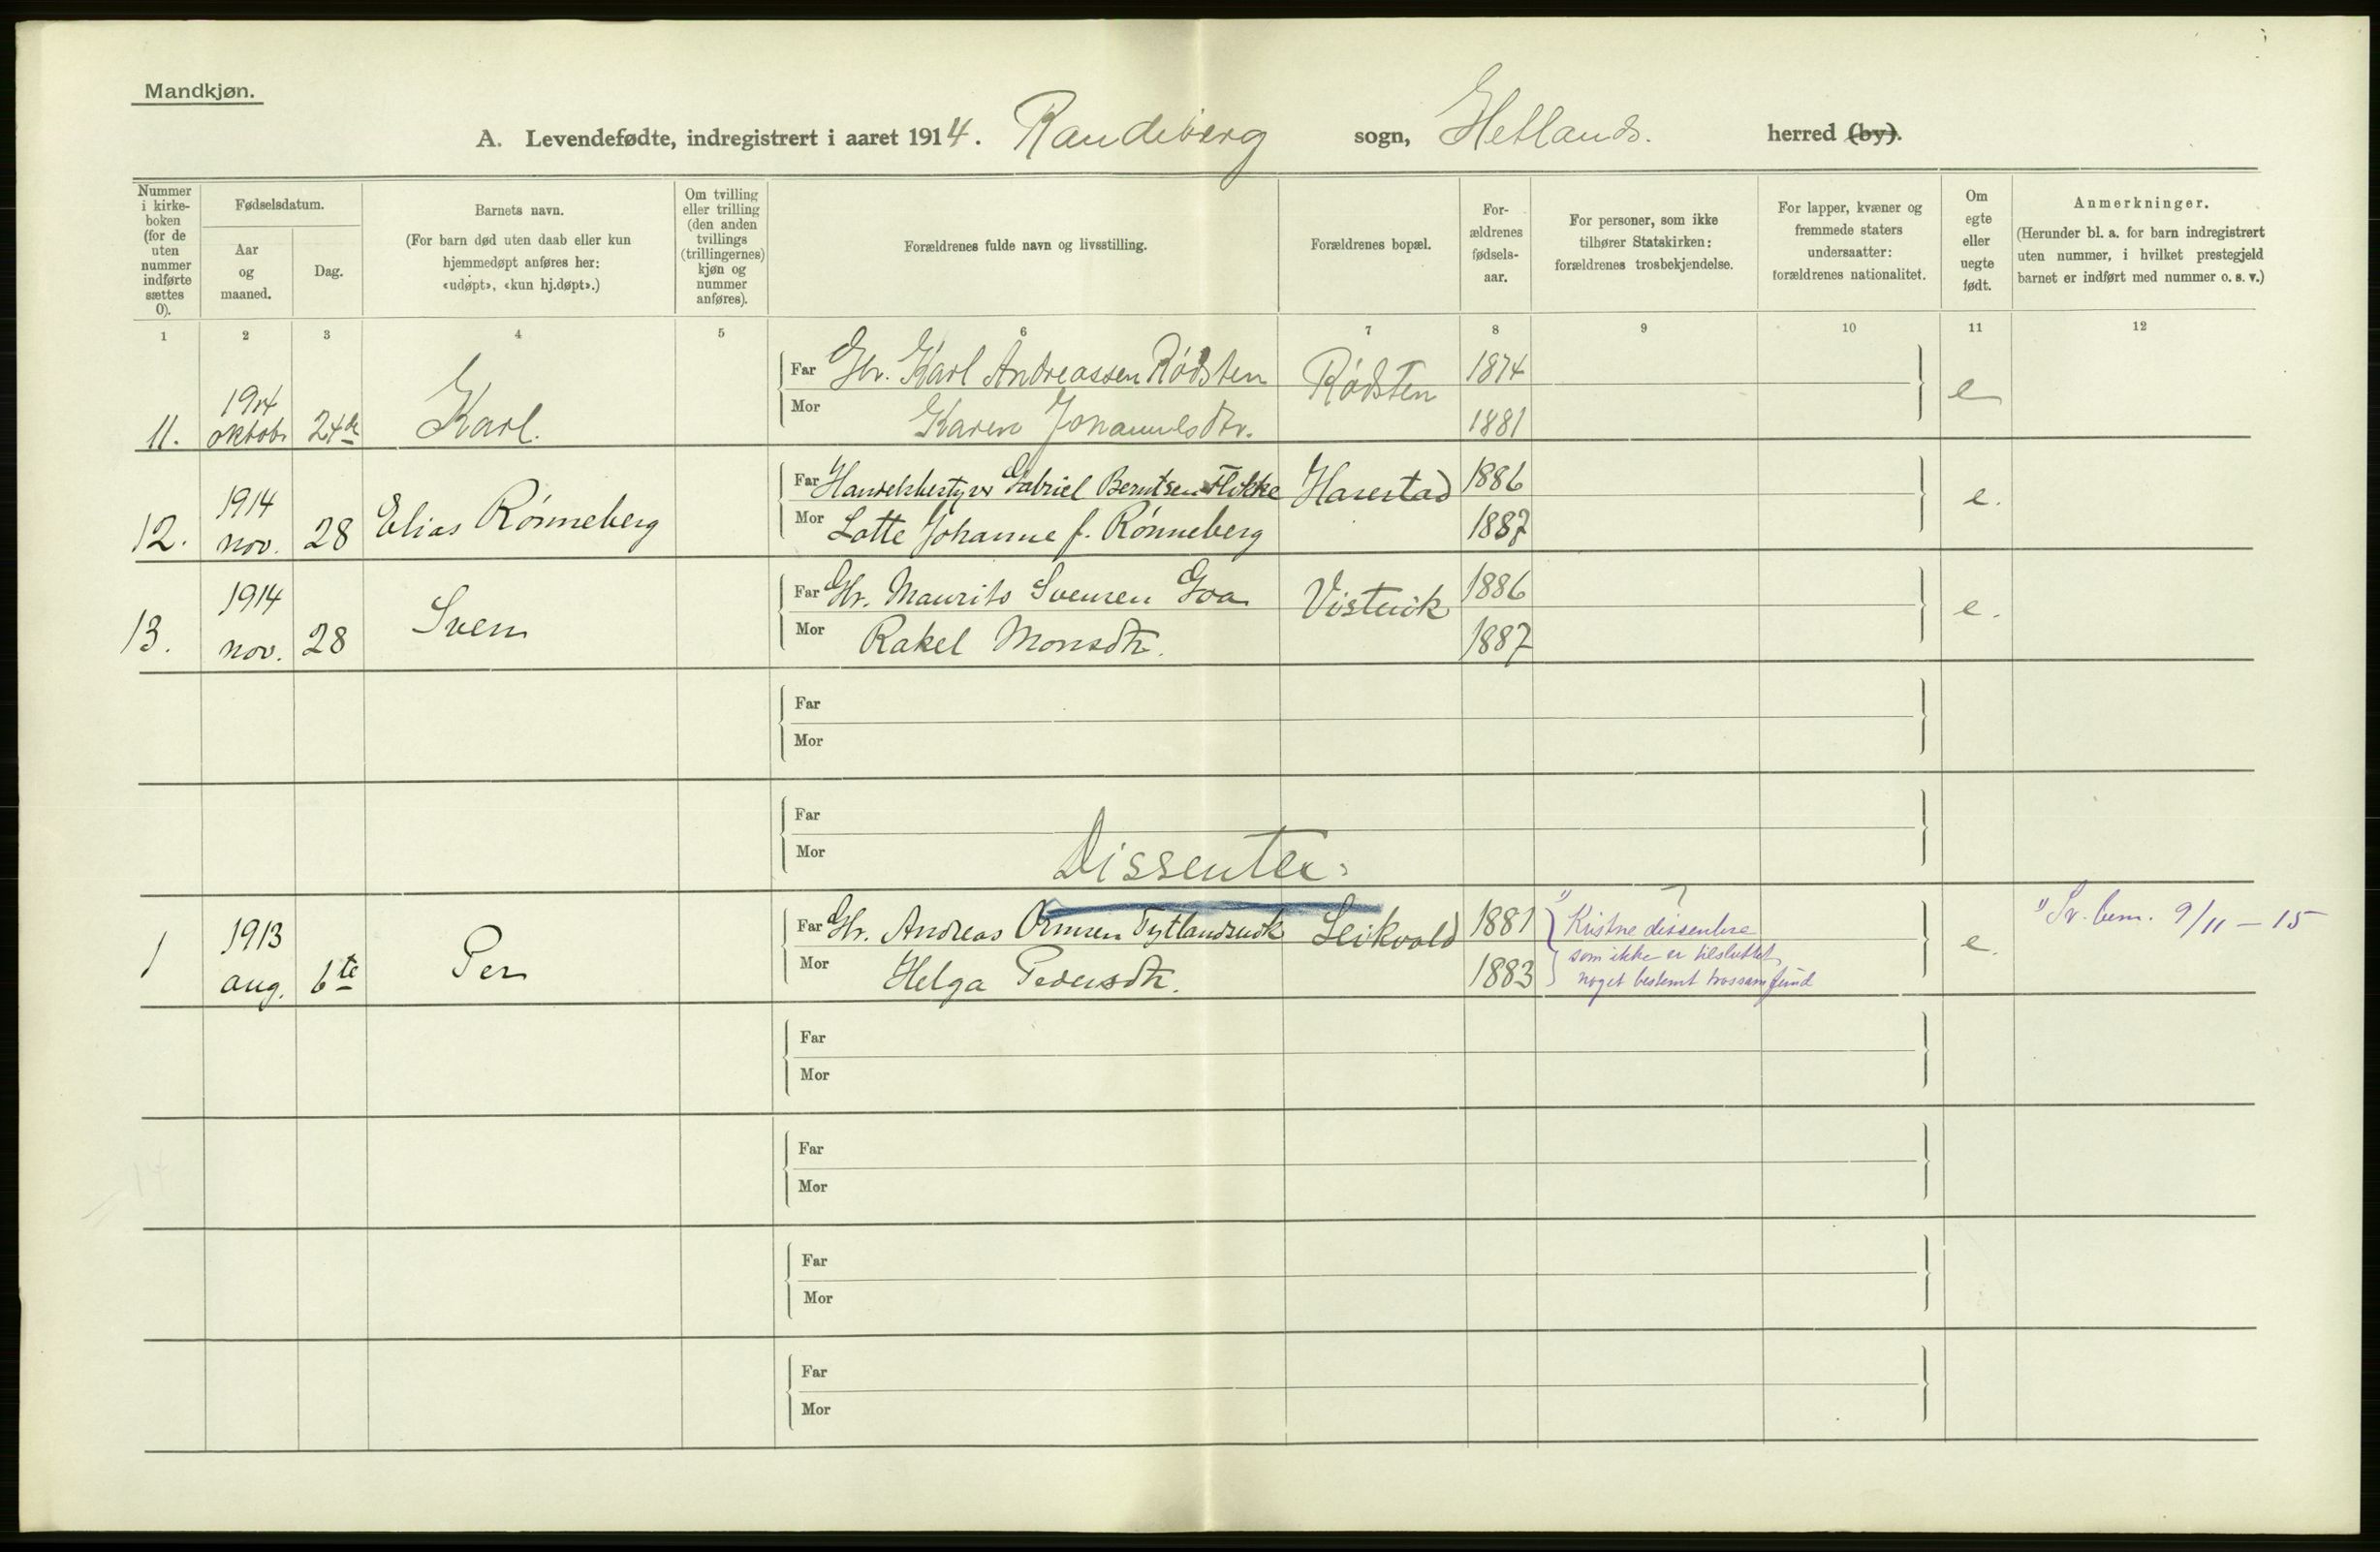 Mandkjøn.
A. Levendefødte, indregistrert i aaret 1914. Randeberg sogn, Hetlands. herred (by).
Nummer i kirke-boken (for de uten nummer indførte sættes 0).
Fødselsdatum.
Aar og maaned.
Dag.
Barnets navn.
(For barn død uten daab eller kun hjemmedøpt anføres her: «udøpt», «kun hj.døpt».)
Om tvilling eller trilling (den anden tvillings (trillingernes) kjøn og nummer anføres).
Forældrenes fulde navn og livsstilling.
Forældrenes bopæl.
For-ældrenes fødsels-aar.
For personer, som ikke tilhører Statskirken: forældrenes trosbekjendelse.
For lapper, kvæner og fremmede staters undersaatter: forældrenes nationalitet.
Om egte eller uegte født.
Anmerkninger.
(Herunder bl. a. for barn indregistrert uten nummer, i hvilket prestegjeld barnet er indført med nummer o. s. v.)
1 2 3 4 5 6 7 8 9 10 11 12
11. 1914 oktob. 24de Karl. Far Gbr. Karl Andreassen Rødsten Rødsten 1874 e
Mor Karen Johannesdtr. 1881
12. 1914 nov. 28 Elias Rønneberg Far Handelsbestyrer Gabriel Berntsen Flikke Harestad 1886 e.
Mor Lotte Johanne f. Rønneberg 1887
13. 1914 nov. 28 Sven Far Gbr. Maurits Svensen Goa Vistevik 1886 e.
Mor Rakel Monsdtr. 1887
Far
Mor
Far
Mor Dissenter:
1 1913 aug. 6te Per Far Gbr. Andreas Ormsen Tytlandsvik Leikvold 1881 Kristne dissentere e. Sv. bem. 9/11 - 15
Mor Helga Pedersdtr. 1883 som ikke er tilsluttet
noget bestemt trossamfund
Far
Mor
Far
Mor
Far
Mor
Far
Mor